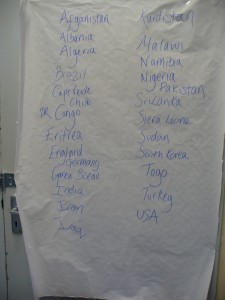 Afganistan
Albania
Algeria
Brazil
Cape Verde
Chile
DR Congo
Eritrea
England
Germany
India
Iran
Iraq
Kurdistan
Malawi
Namibia
Nigeria
Pakistan
Sri Lanka
Siera Leone
Sudan
South Korea
Togo
Turkey
USA